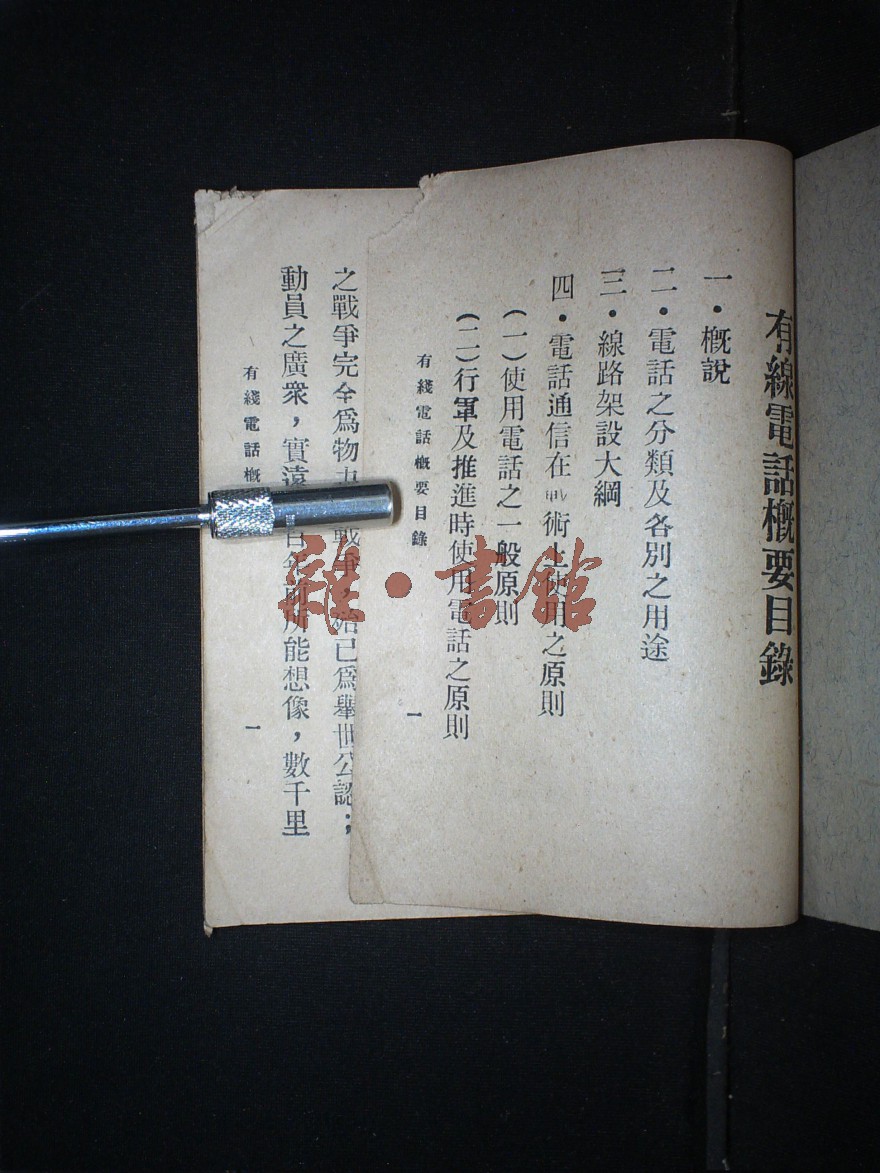 有線電話概要目錄
一・概說
二・電話之分類及各別之用途
三・線路架設大綱
四・電話通信在戰術上使用之原則
(一)使用電話之一般原則
(二)行軍及推進時使用電話之原則
有綫電話概要目錄
一
之戰爭完全爲物力戰爭，殆已爲舉世公認；
動員之廣衆，實遠 百年前所能想像，數千里
有綫電話概
一
雜・書館